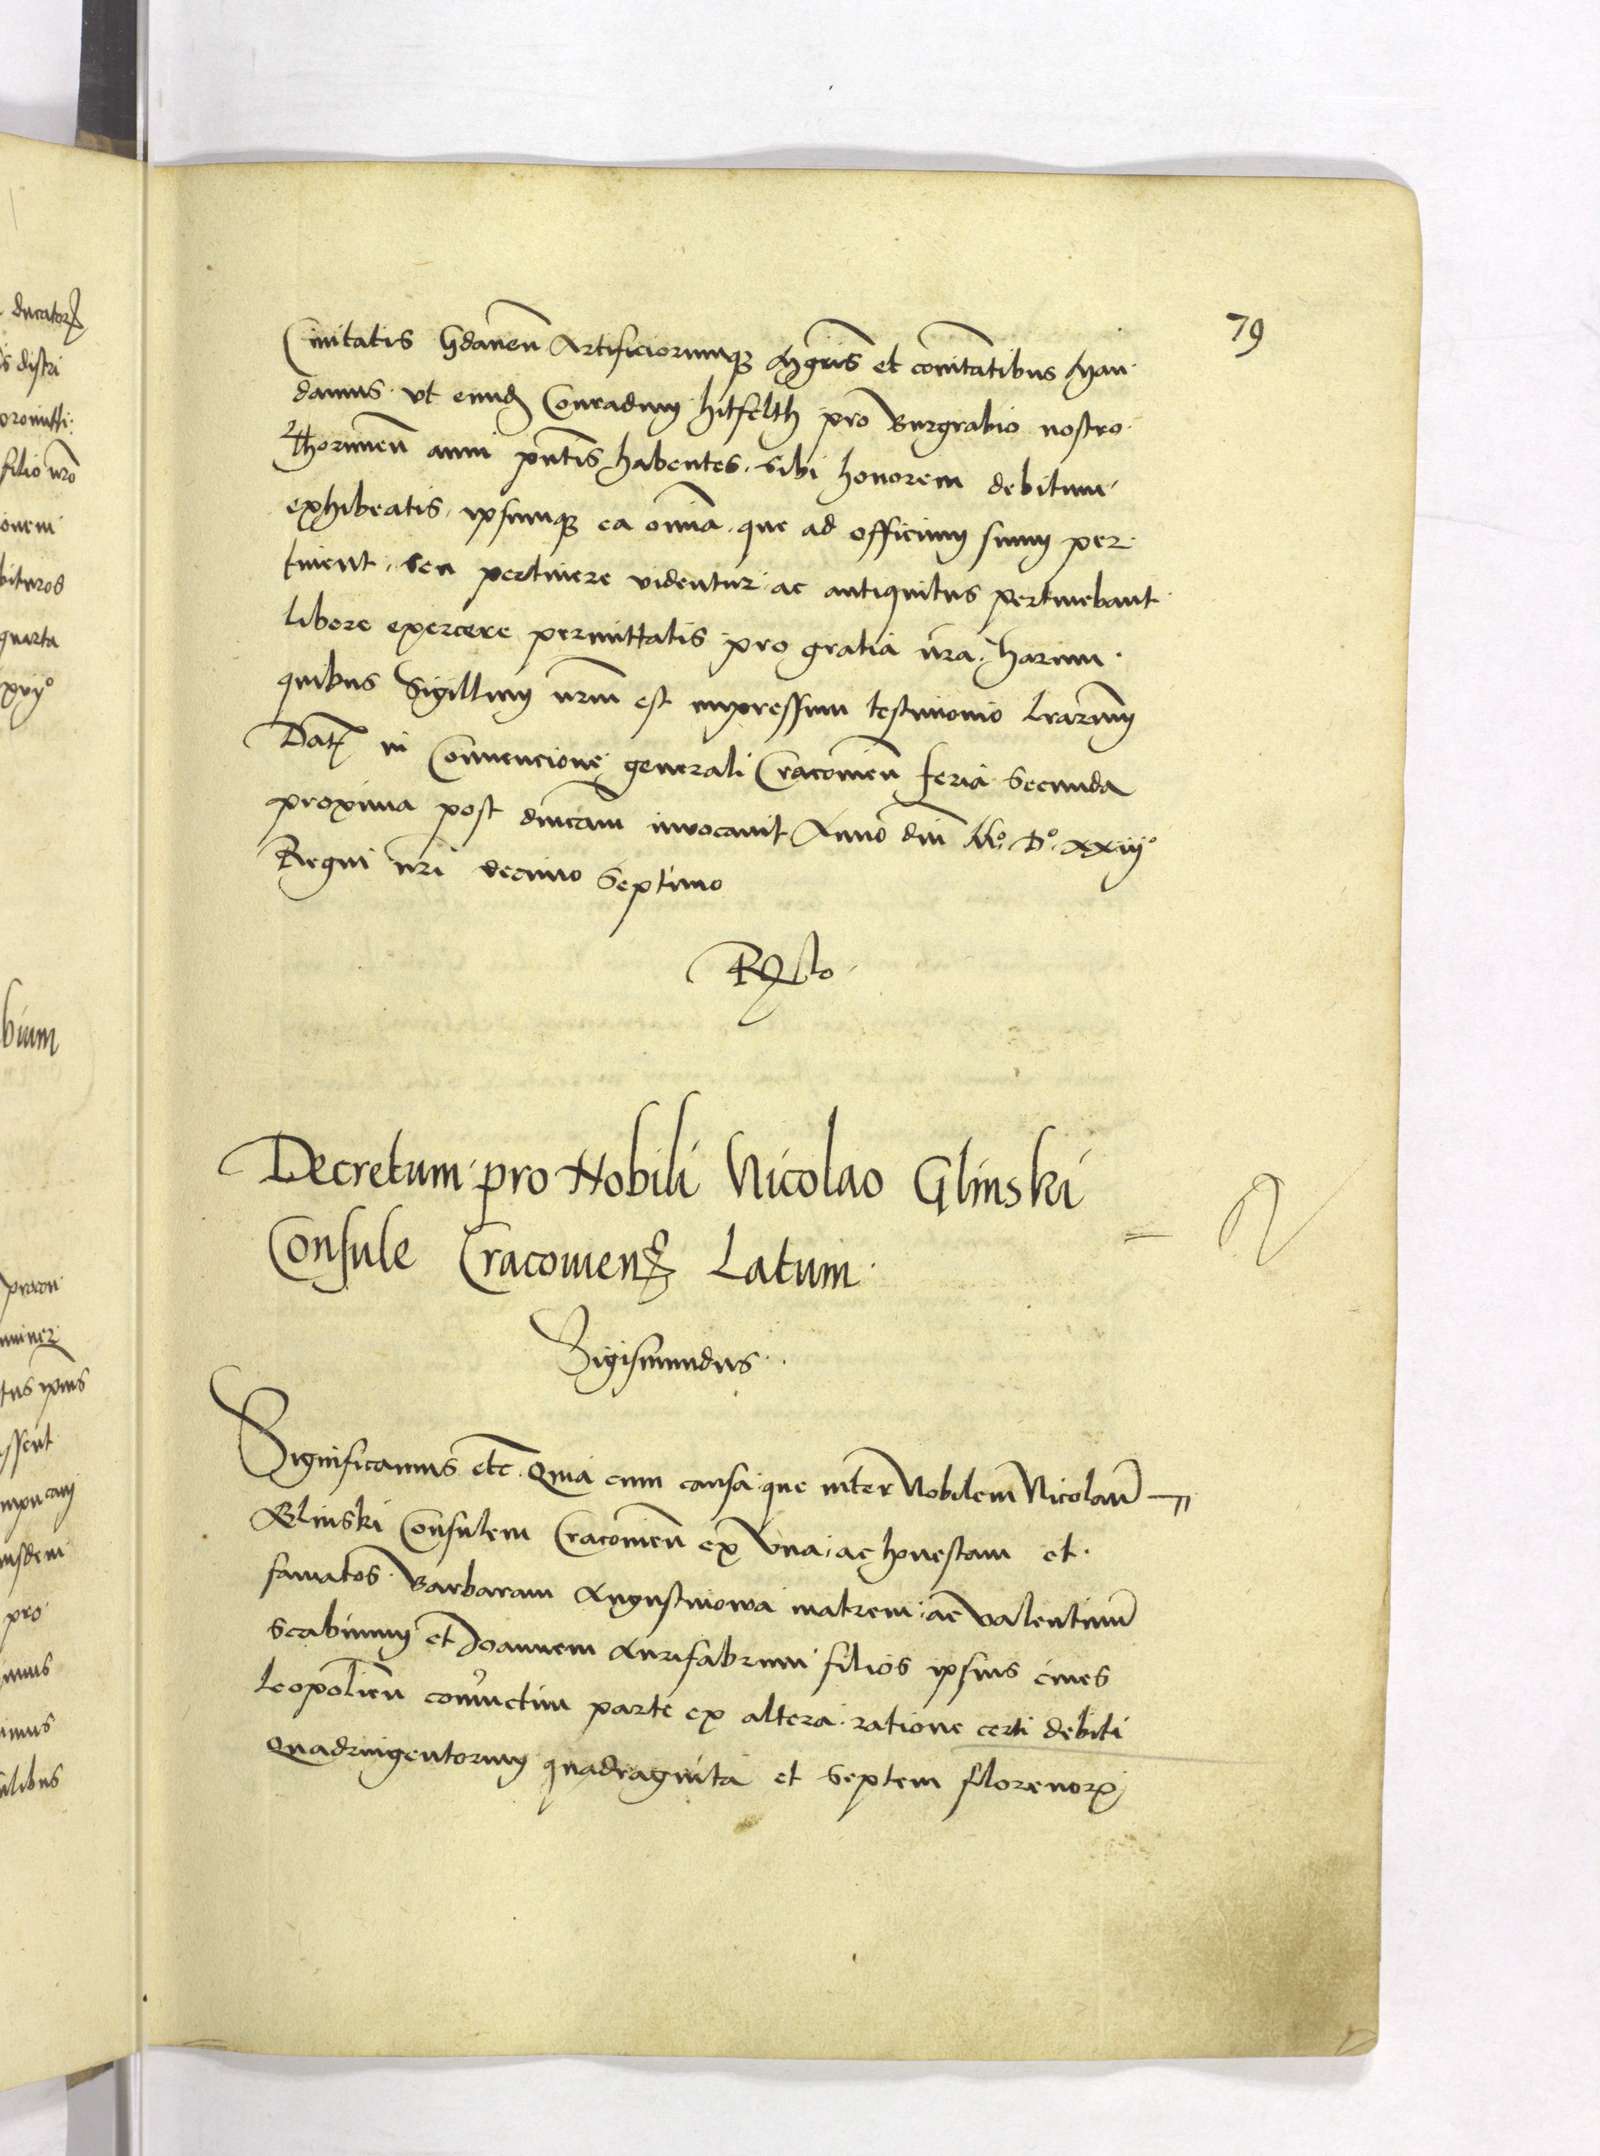 79
Civitatis Gdanen̄ Artificiorumqꝫ Mgr̄is et com̄tatibus Man
damus ut eundꝫ Conradum hitfelth pro Burgrabio nostro
Thorunen̄ anni pn̄tis habentes sibi honorem debitum
exhibeatis ipsumqꝫ ea omnia que ad officium suum per
tinent seu pertinere videntur ac antiquitus pertinebant
libere exercere permittatis pro gratia nr̄a. harum
quibus Sigillum nrm̄ est impressum testimonio lr̄arum
Datꝭ in Convencione generali Cracovien̄ feria secunda
proxima post dn̄icam invocavit Anno dn̄i Mo. Do. xxiijo
Regni nr̄i decimo septimo
Decretum pro Nobili Nicolao Glinski
Consule Cracovienꝭ Latum
Sigismundus
Significamus etc̄ Quia cum causa que inter Nobilem Nicolaum̄
Glinski Consulem Cracovien̄ ex una ac honestam et
famatos Barbaram Augustinowa matrem ac Valentinum̄
Scabinum et Joannem Aurifabrum filios ipsius cives
Leopolien̄ coniunctim parte ex altera ratione certi debiti
Quadringentorum quadraginta et septem florenorꝫ